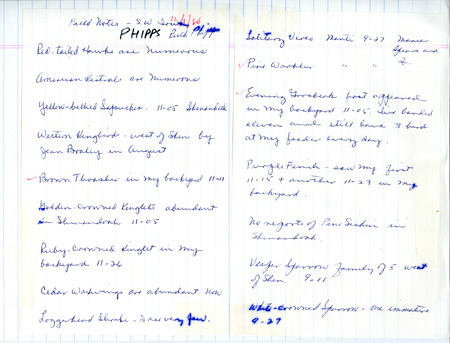 Field Notes - S.W. Iowa
PHIPPS
Red-tailed Hawks are Numerous
American Kestrals are Numerous
Yellow-bellied Sapsucker - 11-05 Shenandoah
Western Kingbird - west of Shen by
Jean Braley in August
Brown Thrasher in my backyard 11-11
Golden-Crowned Kinglets abundant
in Shenandoah 11-05
Ruby-Crowned Kinglet in my
backyard 11-26
Cedar Waxwings are abundant now
Loggerhead Shrike - I see very few.
Solitary Vireo Manti 9-27
Pine Warbler " "
Evening Grosbeak first appeared
in my backyard 11-05. I've banded
eleven and still have 3 bird
at my feeder every day.
Purple Finch - saw my first
11-15 + another 11-23 in my
backyard.
No reports of Pine Siskin in
Shenandoah.
Vesper Sparrow family of 5 west
of Shen 9-11
White-crowned Sparrow - one immature
9-27